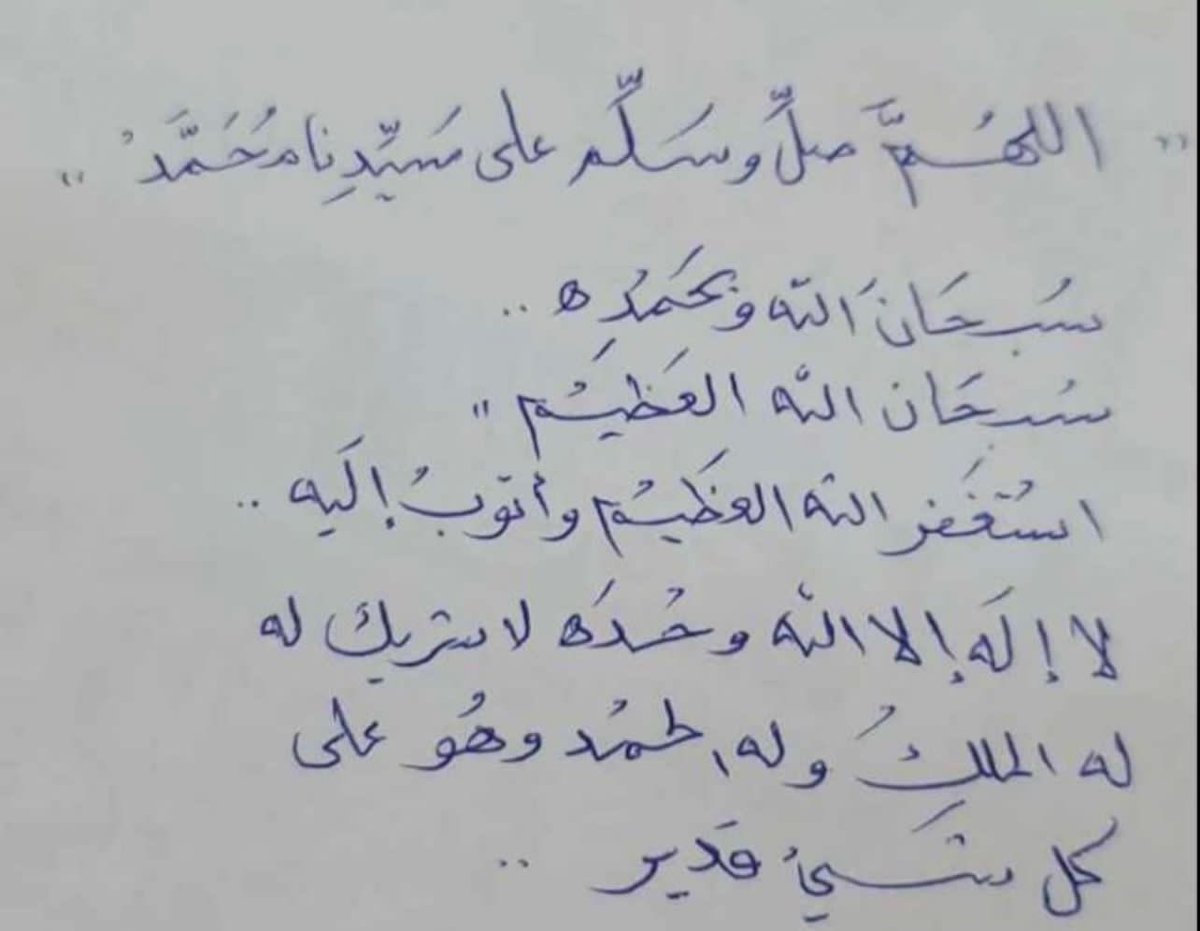 " اللهُمَّ صلِّ وسَلِّم على سَيِّدِنا محَمَّدُ "
سُبحَانَ الله وبحَمدِه ..
سُبحَان الله العَظيم "
استغفر الله العَظيم وأتوبُ إليه ..
لا إلَه إلا الله وحْدَه لا شريك له
له الملكُ وله الحمْد وهُو على
كل شَيءُ قدَير ..